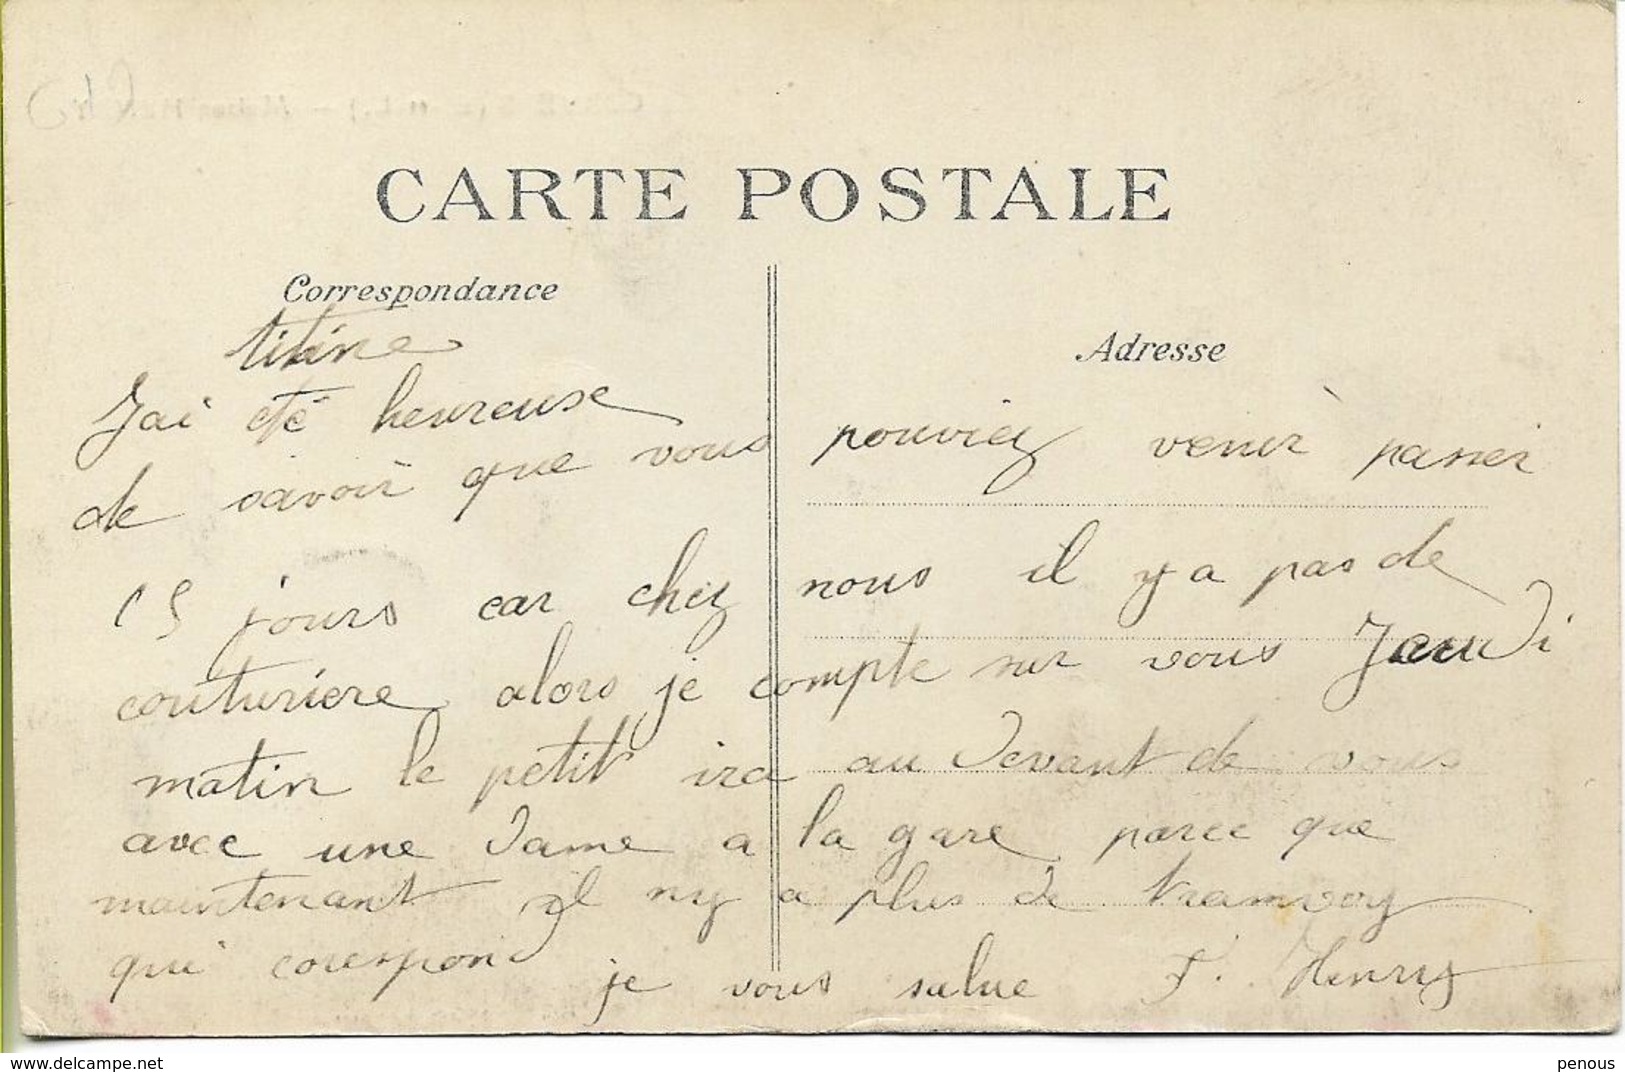 CARTE POSTALE
Correspondance
Adresse
titine
J'ai été heureuse
de savoir que vous pouviez venir passer
cs jours car chez nous il y a pas de
couturiere alors je compte sur vous Jeudi
matin le petit ira au devant de vous
avec une dame a la gare parce que
maintenant il ny a plus de tramvoy
qui corespond je vous salue F. Henry
penous
www.delcampe.net